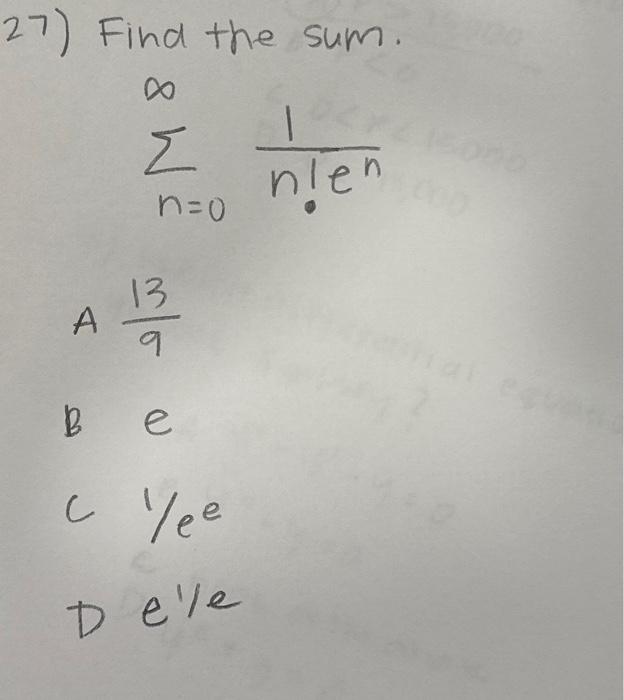 27) Find the sum.
∞
Σ 1/n!eⁿ
n=0
A 13/9
B e
C 1/eᵉ
D e^1/e